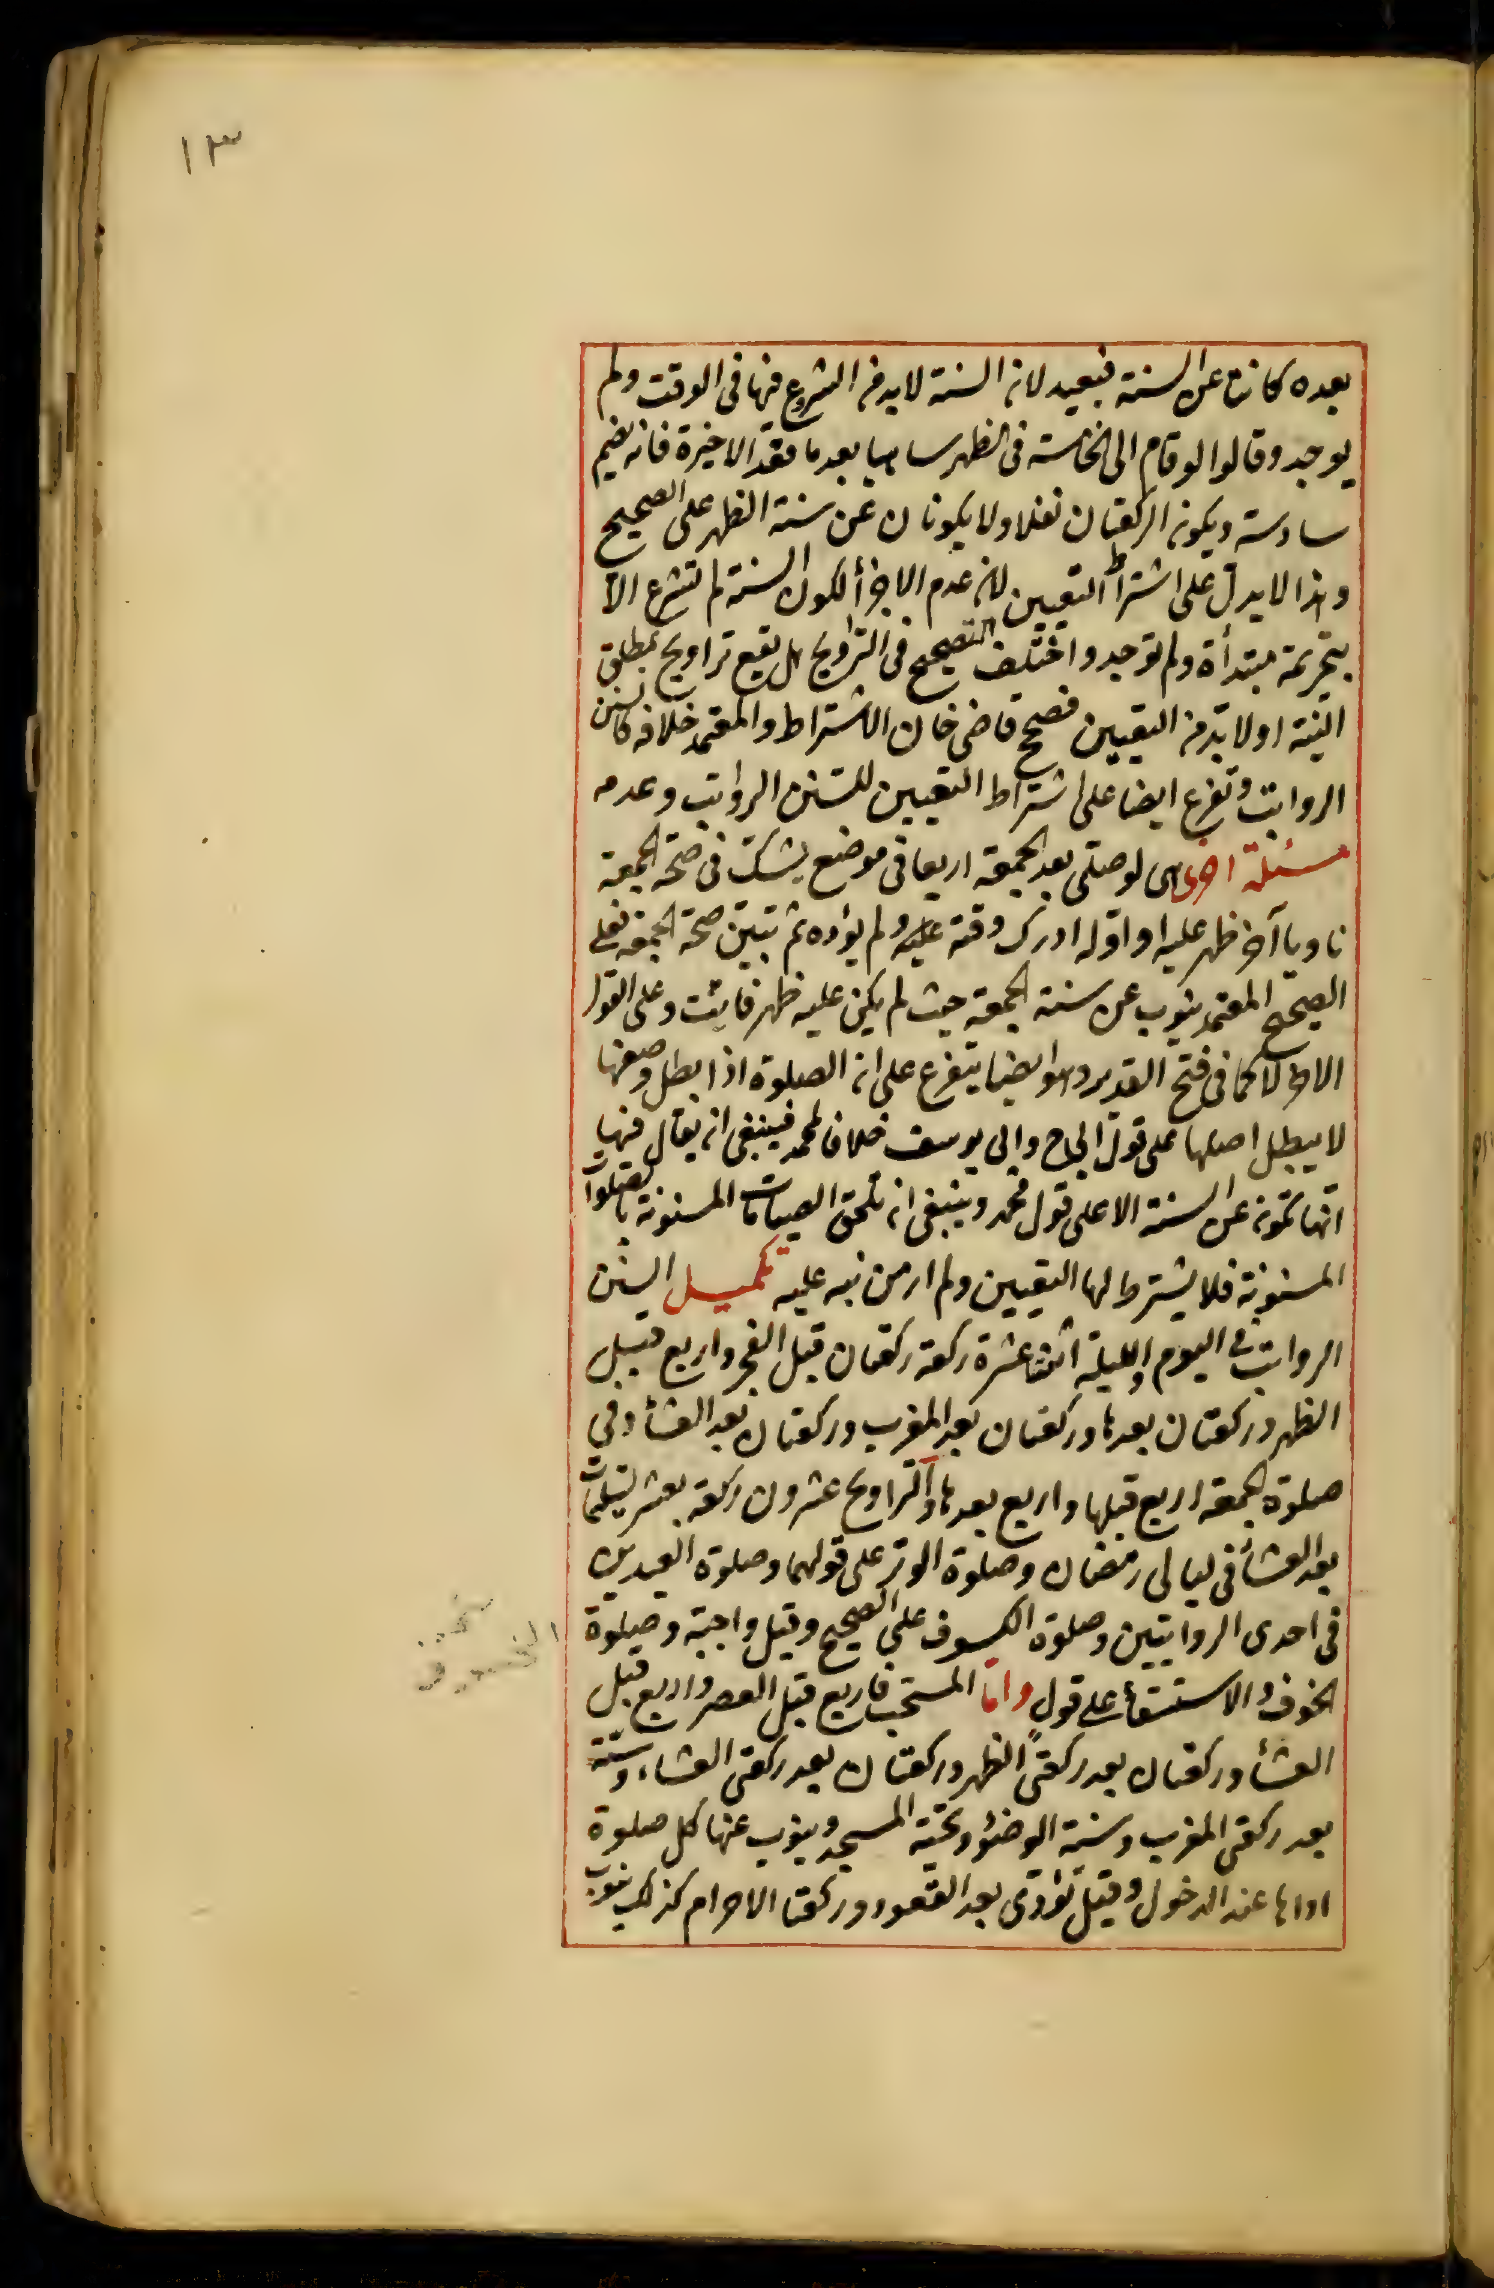 ١٣
بعده كانتا عن السنة فبعيد لان السنة لا بد من الشروع فيها فى الوقت ولم
يوجد وقالوا لو قام الى الخامسة فى الظهر ساهيا بعد ما قعد الاخيرة فانه يضم
سادسة ويكون الركعتان نفلا ولا يكونان عن سنة الظهر على الصحيح
وهذا لا يدل على اشتراط التعيين لان عدم الاجزأ لكون السنة لم تشرع الا
بتحريمة مبتدأة ولم توجد واختلف التصحيح فى التراويح هل تقع تراويح بمطلق
النية او لا بد من التعيين فصحح قاضى خان الاشتراط والمعتمد خلافه كالسنن
الرواتب وتفرع ايضا على اشتراط التعيين للسنن الرواتب وعدمه
مسئلة اخرى هى لو صلى بعد الجمعة اربعا فى موضع يشك فى صحة الجمعة
ناويا آخر ظهر عليه او اوله ادرك وقته عليه ولم يؤده ثم تبين صحة الجمعة فعلى
الصحيح المعتمد ينوب عن سنة الجمعة حيث لم يكن عليه ظهر فايئت وعلى القول
الاخر لا كما فى فتح القدير وهو ايضا يتفرع على ان الصلوة اذا بطل وصفها
لا يبطل اصلها على قول ابى ح وابى يوسف خلافا لمحمد فينبغى ان يقال فيها
انها تكون عن السنة الا على قول محمد وينبغى ان تلحق الصيامات المسنونة بالصلوات
المسنونة فلا يشترط لها التعيين ولم ار من نبه عليه تكميل السنن
الرواتب فى اليوم والليلة اثنتا عشرة ركعة ركعتان قبل الفجر واربع قبل
الظهر وركعتان بعدها وركعتان بعد المغرب وركعتان بعد العشأ وفى
صلوة الجمعة اربع قبلها واربع بعدها والتراويح عشرون ركعة بعشر تسليمات
بعد العشأ فى ليالى رمضان وصلوة الوتر على قولهما وصلوة العيدين
فى احدى الروايتين وصلوة الكسوف على الصحيح وقيل واجبة وصلوة
الخوف والاستسقأ على قول واما المستحب فاربع قبل العصر واربع قبل
العشأ وركعتان بعد ركعتى الظهر وركعتان بعد ركعتى العشاء وستة
بعد ركعتى المغرب وسنة الوضؤ وتحية المسجد وينوب عنها كل صلوة
اداها عند الدخول وقيل تؤدى بعد القعود وركعتا الاحرام كذلك ينوب
الخسوف